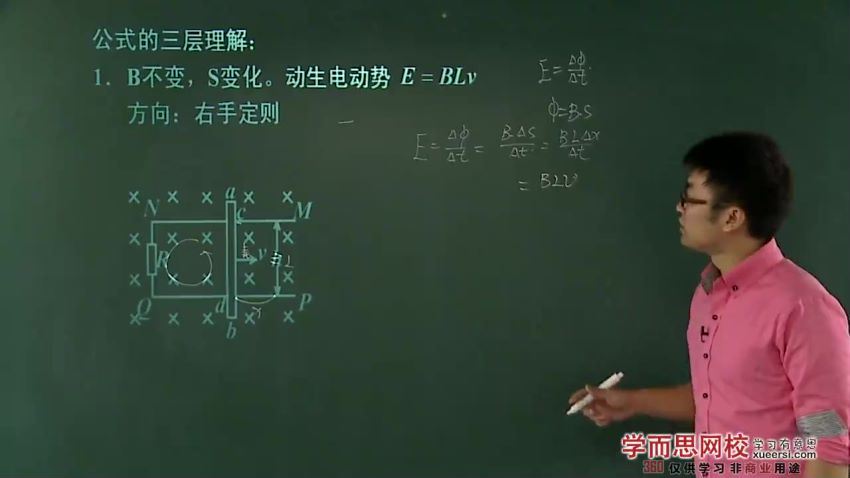 公式的三层理解:
1. B不变，S变化。动生电动势 E = BLv
方向：右手定则
E = Δφ/Δt
φ=B·S
E = Δφ/Δt = B·ΔS/Δt = BLΔx/Δt
= BLv
a
N c M
R v L
Q d P
b
学而思网校 学习有意思
xueersi.com
360 仅供学习 非商业用途